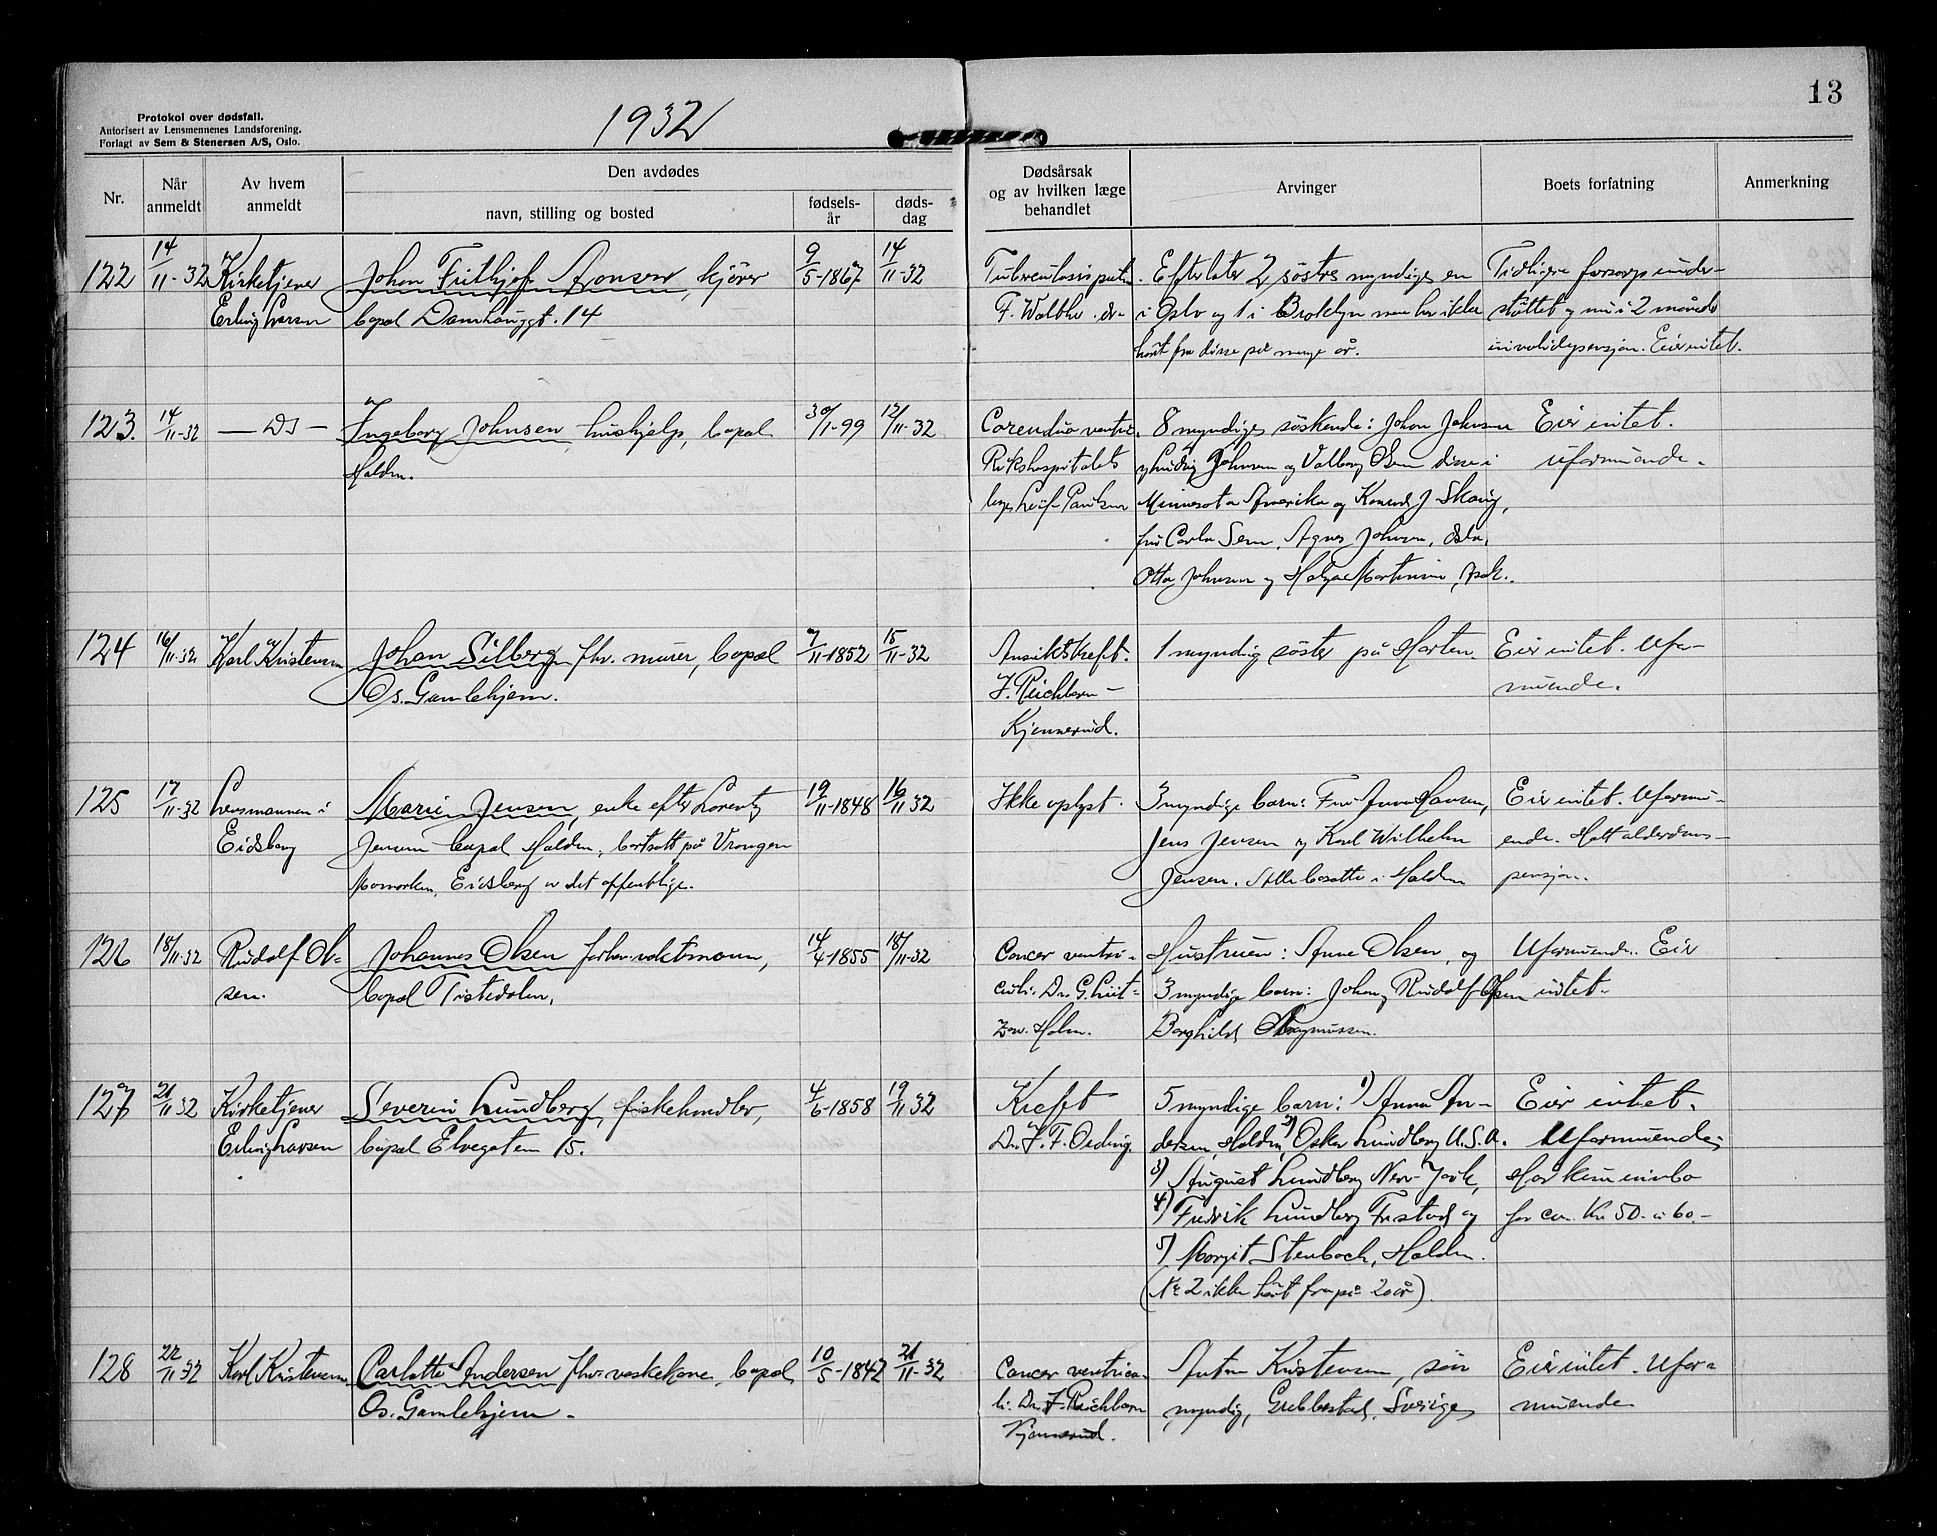 13
Protokol over dødsfall.
Autorisert av Lensmennenes Landsforening.
Forlagt av Sem & Stenersen A/S, Oslo.
1932
Nr.
Når anmeldt
Av hvem anmeldt
Den avdødes
navn, stilling og bosted
fødsels-år
døds-dag
Dødsårsak og av hvilken læge behandlet
Arvinger
Boets forfatning
Anmerkning
122 14/11-32 Kirketjener Johan Frithjof Aronsen, kjører 9/5-1867 14/11-32 Efterlater 2 søstre myndige en Tidligere forsorgsunder-
Erling Larsen bopæl Damhauggt. 14 F. Walther i Oslo og 1 i Broklyn men har ikke støttet og nu i 2 måneder
hørt fra disse på mange år. invalidepensjon. Eier intet.
123. 14/11-32 — Ds — Ingeborg Johnsen, hushjelp, bopæl 30/1-99 12/11-32 8 myndige søskende: Johan Johnsen Eier intet.
Halden. Rikshospitalets Ludvig Johnsen og Valborg Olsen disse i Uformuende.
læge Leif Minnesota Amerika og Konrad J Skaug,
fru Carla Sem, Agnes Johnsen, Oslo,
Otto Johnsen og Helga Martinsen,
124 16/11-32 Karl Kristensen Johan Silberg fhv. murer, bopæl 7/11-1852 15/11-32 Ansiktskreft. 1 myndig søster på Horten. Eier intet. Ufor-
Os. Gamlehjem. J. Reichborn- muende.
Kjennerud.
125 17/11-32 Lensmannen i Marie Jensen, enke efter Lorentz 19/11-1848 16/11 32 Ikke oplyst. 3 myndige barn: Fru Anna Hansen, Eier intet. Uformu-
Eidsberg Jensen bopæl Halden, bortsatt på Vrangen Jens Jensen og Karl Wilhelm ende. Hatt alderdoms-
Momarken, Eidsberg av det offentlige. Jensen. Alle bosatte i Halden pensjon.
126 18/11-32 Rudolf Ol- Johannes Olsen forhv. vaktmann, 14/4-1855 18/11-32 Cancer ventri- Hustruen: Anne Olsen, og Uformuende. Eier
sen. bopæl Tistedalen, culi. Dr. G. Lüt- 3 myndige barn: Johan, Rudolf Olsen intet.
zow. Holm. Borghild Magnussen.
127 21/11 32 Kirketjener Severin Lundberg, fiskehandler, 4/6-1858 19/11 32 Kreft 5 myndige barn: 1) Anna An- Eier intet.
Erling Larsen bopæl Elvegaten 15. Dr. dersen, Halden, 2) Oskar Lundberg U.S.A. Uformuende;
3) August Lundberg New-York, Har kun innbo
4) Fredrik Lundberg Frstad og for ca. Kr 50.- à 60.-
5) Margit Stenbock, Halden.
(Nr 2 ikke hørt fra på 20 år).
128 22/11 32 Karl Kristensen Carlotte Andersen fhv. vaskekone, bopæl 10/5-1842 21/11-32 Cancer ventricu- Anton Kristensen, søn Eier intet. Ufor-
Os. Gamlehjem. li. Dr. J. Reichborn myndig, Grebbestad, Sverige, muende
Kjennerud.